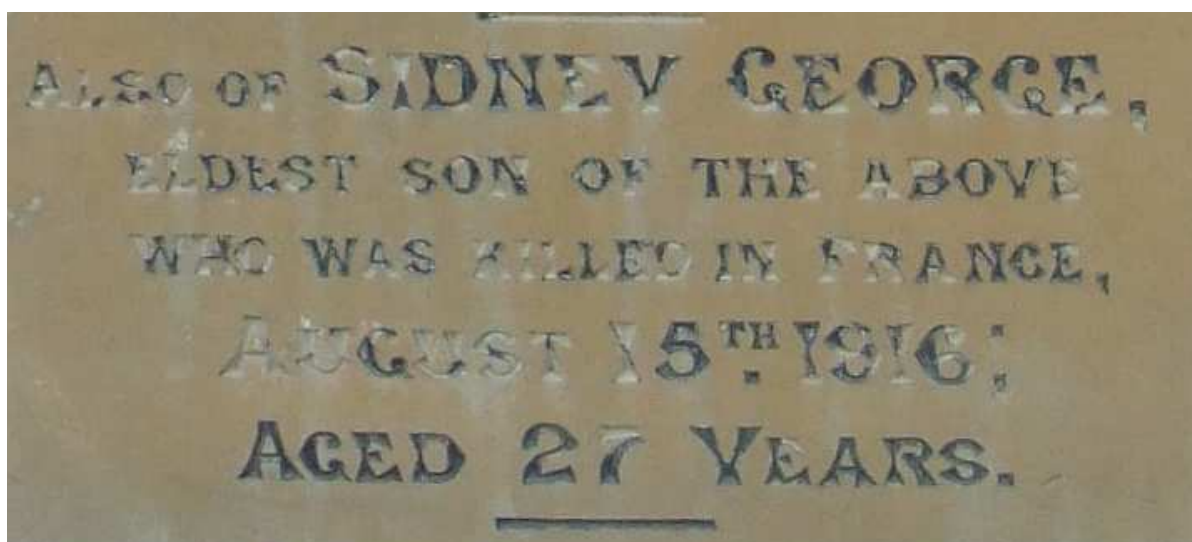 ALSO OF SIDNEY GEORGE,
ELDEST SON OF THE ABOVE
WHO WAS KILLED IN FRANCE,
AUGUST 15TH. 1916;
AGED 27 YEARS.